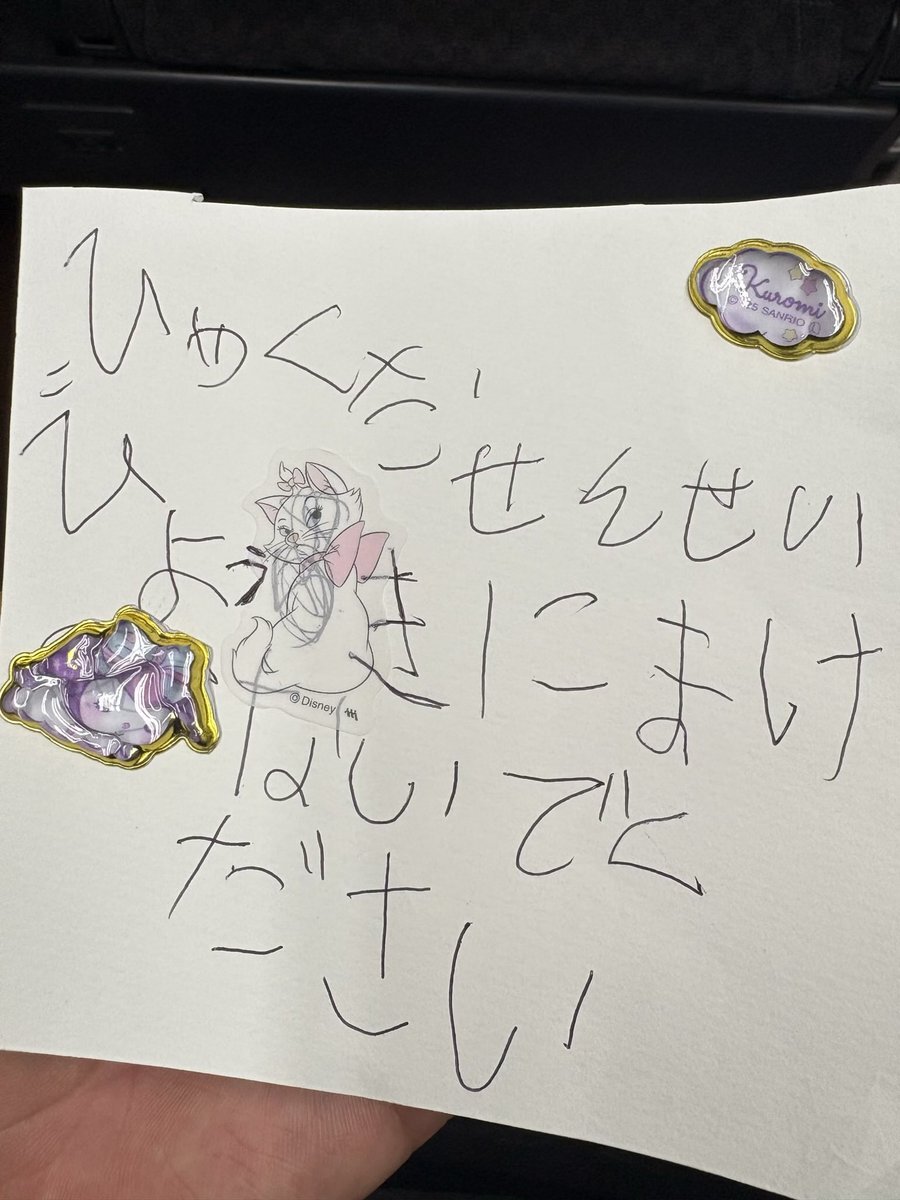 ひゃくた
せんせい
びょうきにまけ
ないでく
ださい
Kuromi
© '25 SANRIO
©Disney